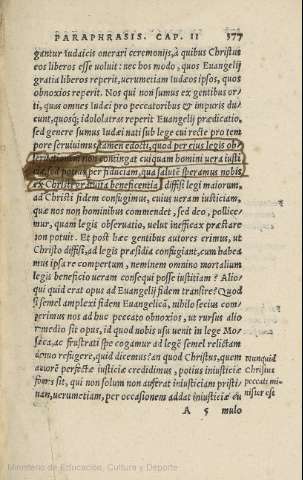 PARAPHRASIS. CAP. II 377
gantur Iudaicis onerari ceremonijs, à quibus Christus
eos liberos esse voluit: nec hos modo, quos Euangelij
gratia liberos reperit, verumetiam Iudæos ipsos, quos
obnoxios reperit. Nos qui non sumus ex gentibus or
ti, quas omnes Iudæi pro peccatoribus & impuris du
cunt, quosq; idololatras reperit Euangelij prædicatio,
sed genere sumus Iudæi nati sub lege cui recte pro tem
pore seruiuimus tamen edocti, quod per eius legis ob
seruationem non contingat cuiquam homini vera iusti
tia, sed potius per fiduciam, qua salutē speramus nobis
ex Christi gratuita beneficentia diffisi legi maiorum,
ad Christi fidem confugimus, cuius veram iusticiam,
quæ nos non hominibus commendet, sed deo, pollice
mur, quam legis obseruatio, velut inefficax præstare
non potuit. Et post hæc gentibus autores erimus, ut
Christo diffisi, ad legis præsidiū confugiant, cum habea
mus ipsa re compertum, neminem omnino mortalium
legis beneficio ueram consequi posse iustitiam? Alio
qui quid erat opus ad Euangelij fidem transire? Quod
si semel amplexi fidem Euangelicā, nihilo secius com
perimus nos ad huc peccato obnoxios, ut rursus alio
remedio sit opus, id quod nobis usu venit in lege Mo
saica, ac frustrati spe cogamur ad legē semel relictam
denuo refugere, quid dicemus? an quod Christus, quem
autorē perfectæ iusticiæ credidimus, potius iniusticiæ
fons sit, qui non solum non auferat iniusticiam pristi
nam, uerumetiam, per occasionem addat iniusticiæ eu
Nunquid
Christus
peccati mi-
nister est
A 5 mulo
Ministerio de Educación, Cultura y Deporte